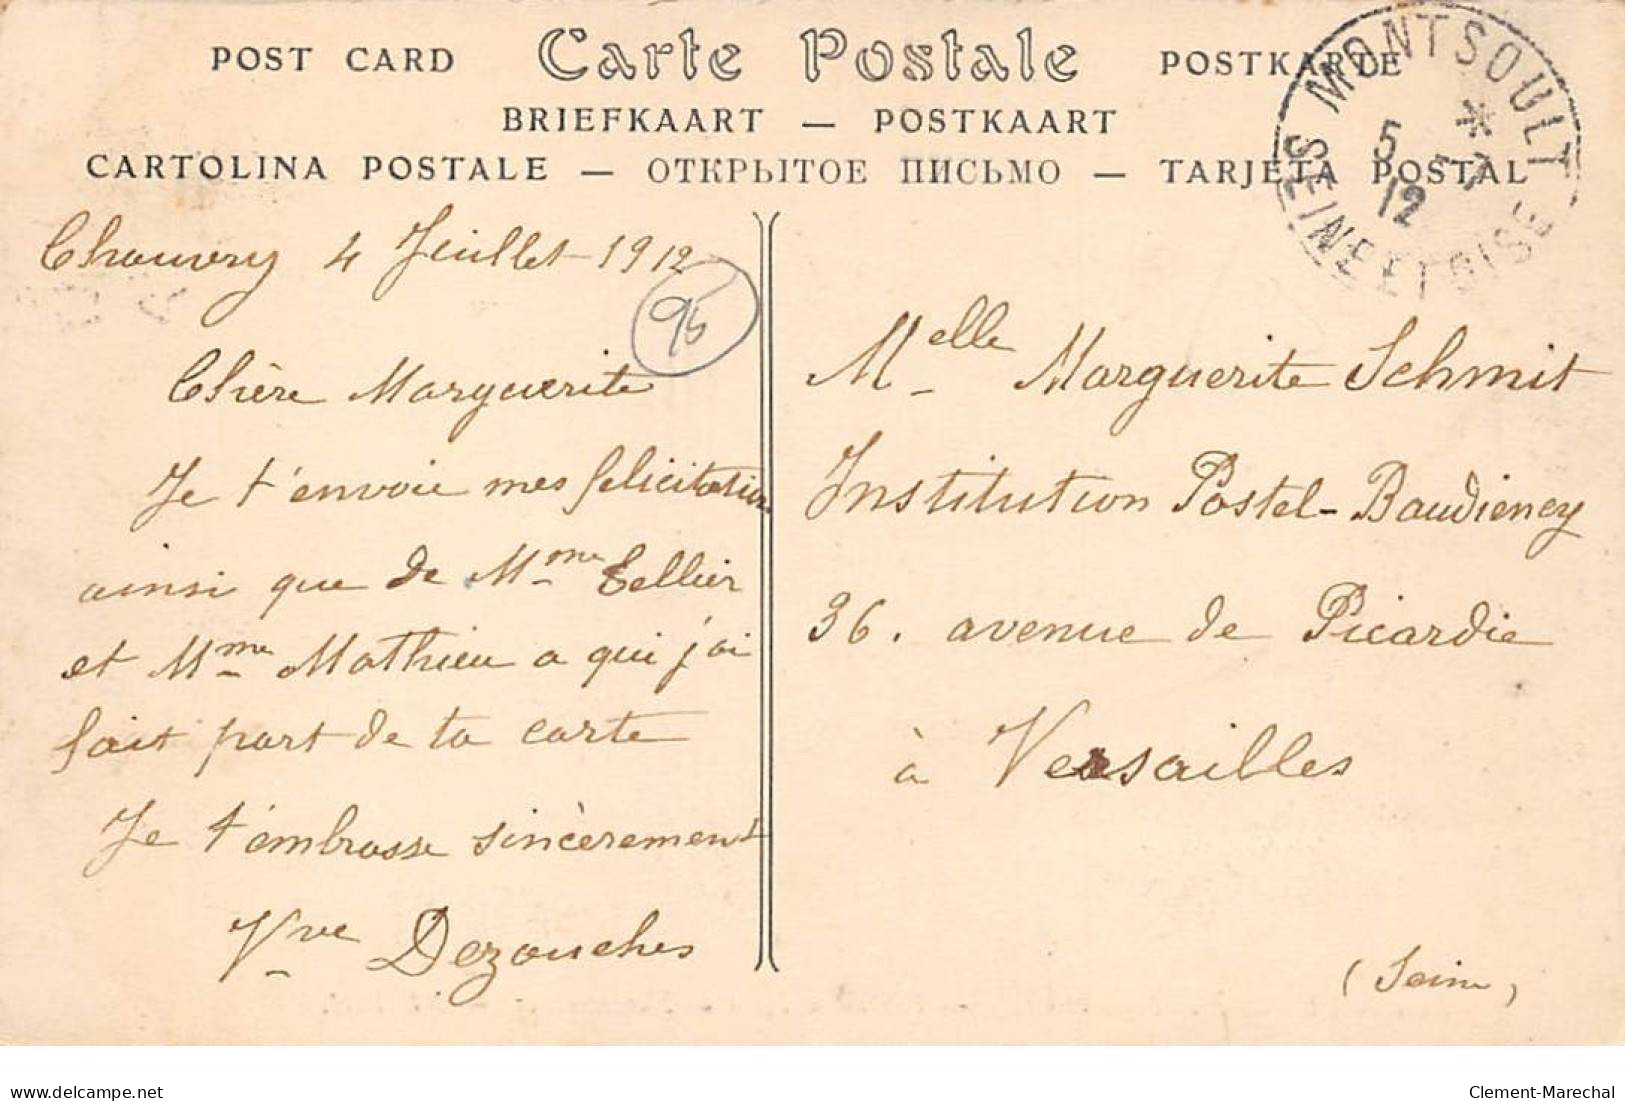 POST CARD Carte Postale POSTKARTE
BRIEFKAART — POSTKAART
CARTOLINA POSTALE — ОТКРЫТОЕ ПИСЬМО — TARJETA POSTAL
MONTSOULT
5 * 7
12
SEINE ET OISE
Chauvry 4 Juillet 1912
95
Chère Marguerite
Je t'envoie mes felicitation
ainsi que de Mme Tellier
et Mme Mathieu a qui j'ai
fait part de ta carte
Je t'embrasse sincèrement
Vve Dezouches
Melle Marguerite Schmit
Institution Postel-Baudieney
36. avenue de Picardie
à Versailles
(Seine)
delcampe.net
Clement-Marechal